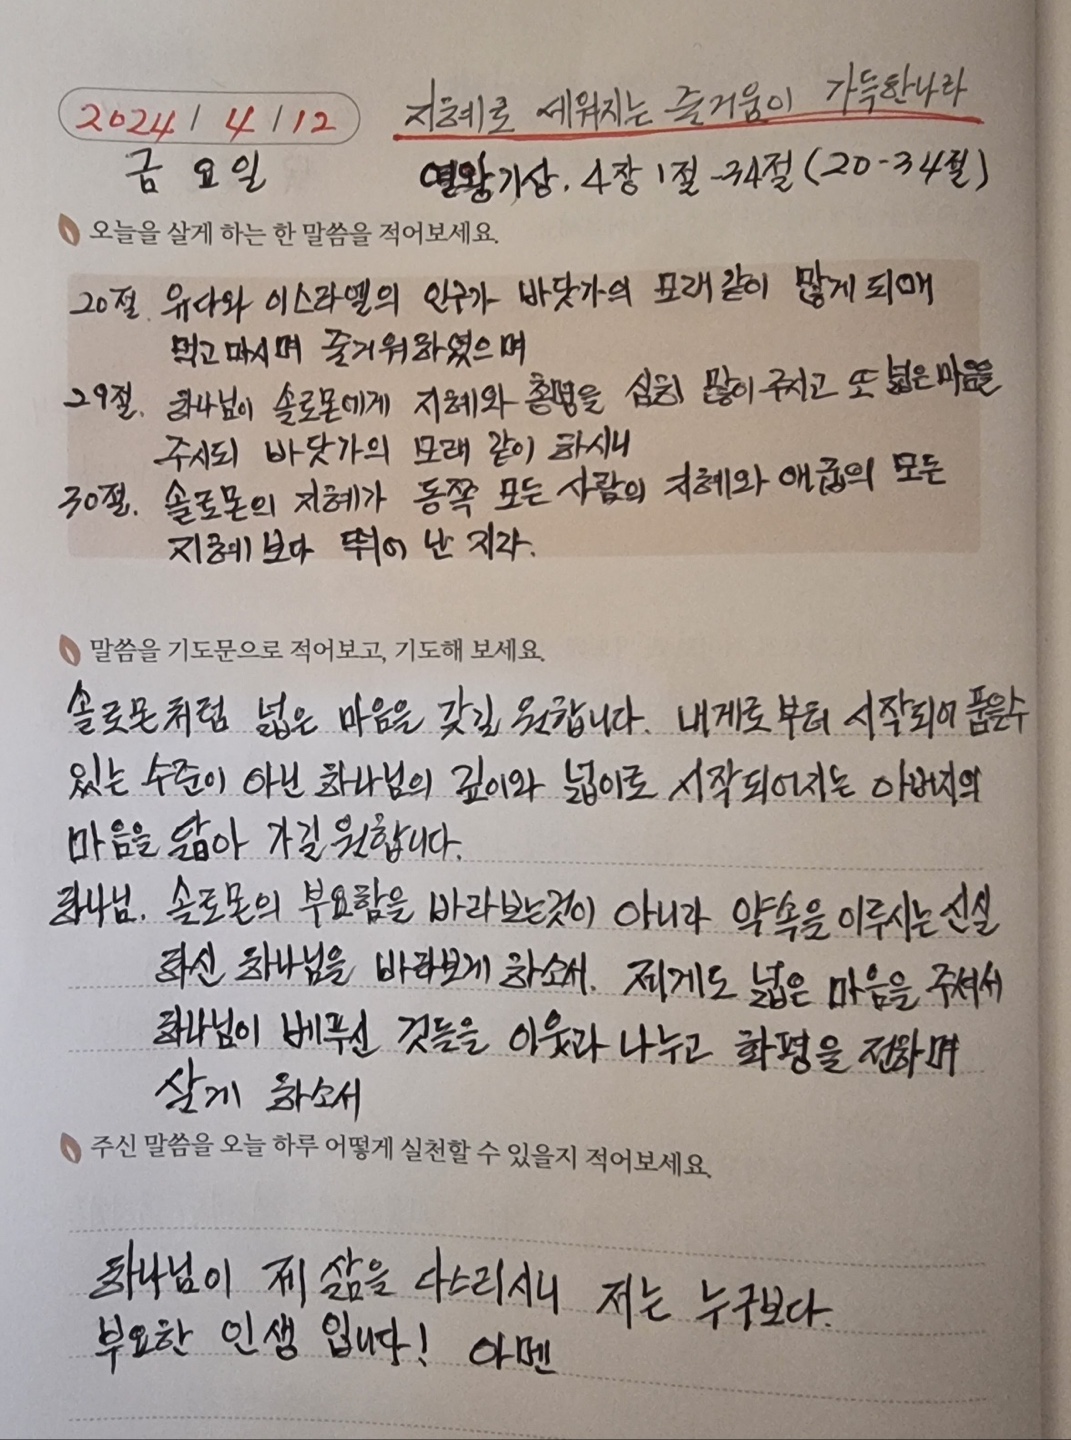 2024 / 4 / 12
지혜로 세워지는 즐거움이 가득한나라
금요일
열왕기상. 4장 1절 -34절 (20-34절)
오늘을 살게 하는 한 말씀을 적어보세요.
20절. 유다와 이스라엘의 인구가 바닷가의 모래같이 많게 되매
먹고 마시며 즐거워하였으며
29절. 하나님이 솔로몬에게 지혜와 총명을 심히 많이 주시고 또 넓은마음을
주시되 바닷가의 모래 같이 하시니
30절. 솔로몬의 지혜가 동쪽 모든 사람의 지혜와 애굽의 모든
지혜보다 뛰어 난 지라.
말씀을 기도문으로 적어보고, 기도해 보세요.
솔로몬처럼 넓은 마음을 갖길 원합니다. 내게로부터 시작되어 품을수
있는 수준이 아닌 하나님의 깊이와 넓이로 시작되어지는 아버지의
마음을 닮아 가길 원합니다.
하나님. 솔로몬의 부요함을 바라보는것이 아니라 약속을 이루시는 신실
하신 하나님을 바라보게 하소서. 저게도 넓은 마음을 주셔서
하나님이 베푸신 것들을 이웃과 나누고 화평을 전하며
살게 하소서
주신 말씀을 오늘 하루 어떻게 실천할 수 있을지 적어보세요.
하나님이 제 삶을 다스리시니 저는 누구보다.
부요한 인생 입니다! 아멘